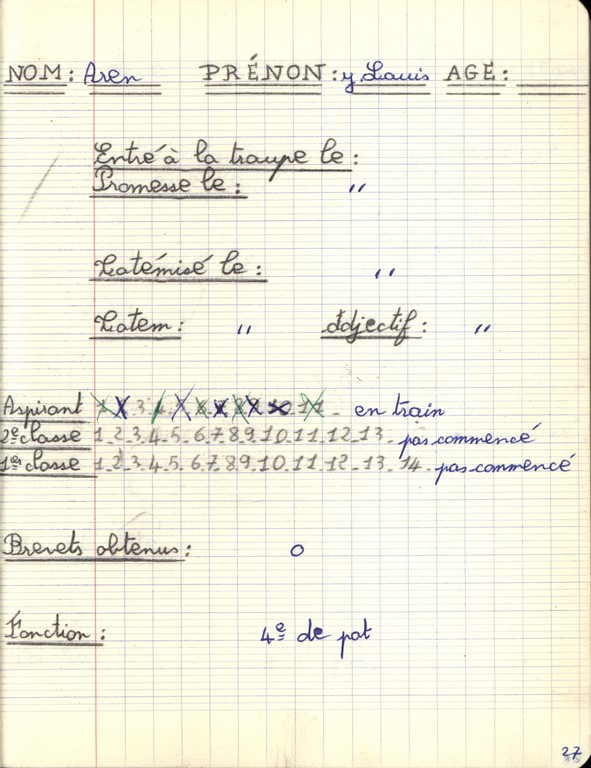 NOM: Aren PRÉNOM: y Louis AGE:
Entré à la troupe le:
Promesse le: "
Totémisé le: "
Totem: " Adjectif: "
Aspirant 1 2 3 4 5 6 7 8 9 10 11 en train
2e classe 1.2.3.4.5.6.7.8.9.10.11.12.13. pas commencé
1ère classe 1.2.3.4.5.6.7.8.9.10.11.12.13.14. pas commencé
Brevets obtenus: 0
Fonction: 4e de pat
27